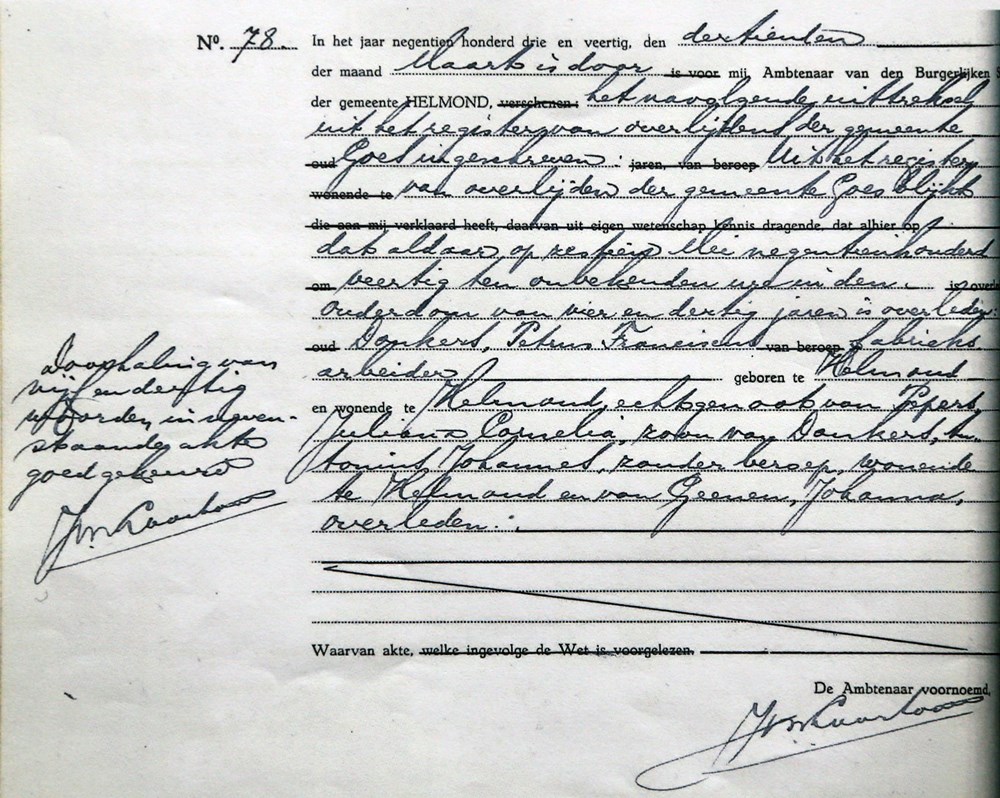 No. 78. In het jaar negentien honderd drie en veertig, den dertienden
der maand Maart is door is voor mij, Ambtenaar van den Burgerlijken S
der gemeente HELMOND, verschenen: het navolgende uittreksel
uit het register van overlijden der gemeente
oud Goes ingeschreven: jaren, van beroep Uit het register
wonende te van overlijden der gemeente Goes blijkt
die aan mij verklaard heeft, daarvan uit eigen wetenschap kennis dragende, dat alhier op
dat aldaar op zestien Mei negentienhonderd
om veertig ten onbekenden ure in den. is overl
ouderdom van vier en dertig jaren is overleden:
oud Donkers, Petrus Franciscus van beroep fabrieks
arbeider geboren te Helmond
en wonende te Helmond, echtgenoot van Pepers,
Juliana Cornelia, zoon van Donkers, An-
tonius Johannes, zonder beroep, wonende
te Helmond en van Geenen, Johanna,
overleden.
Doorhaling van
vijf en dertig
woorden in neven-
staande akte
goedgekeurd
Waarvan akte, welke ingevolge de Wet is voorgelezen.
De Ambtenaar voornoemd,